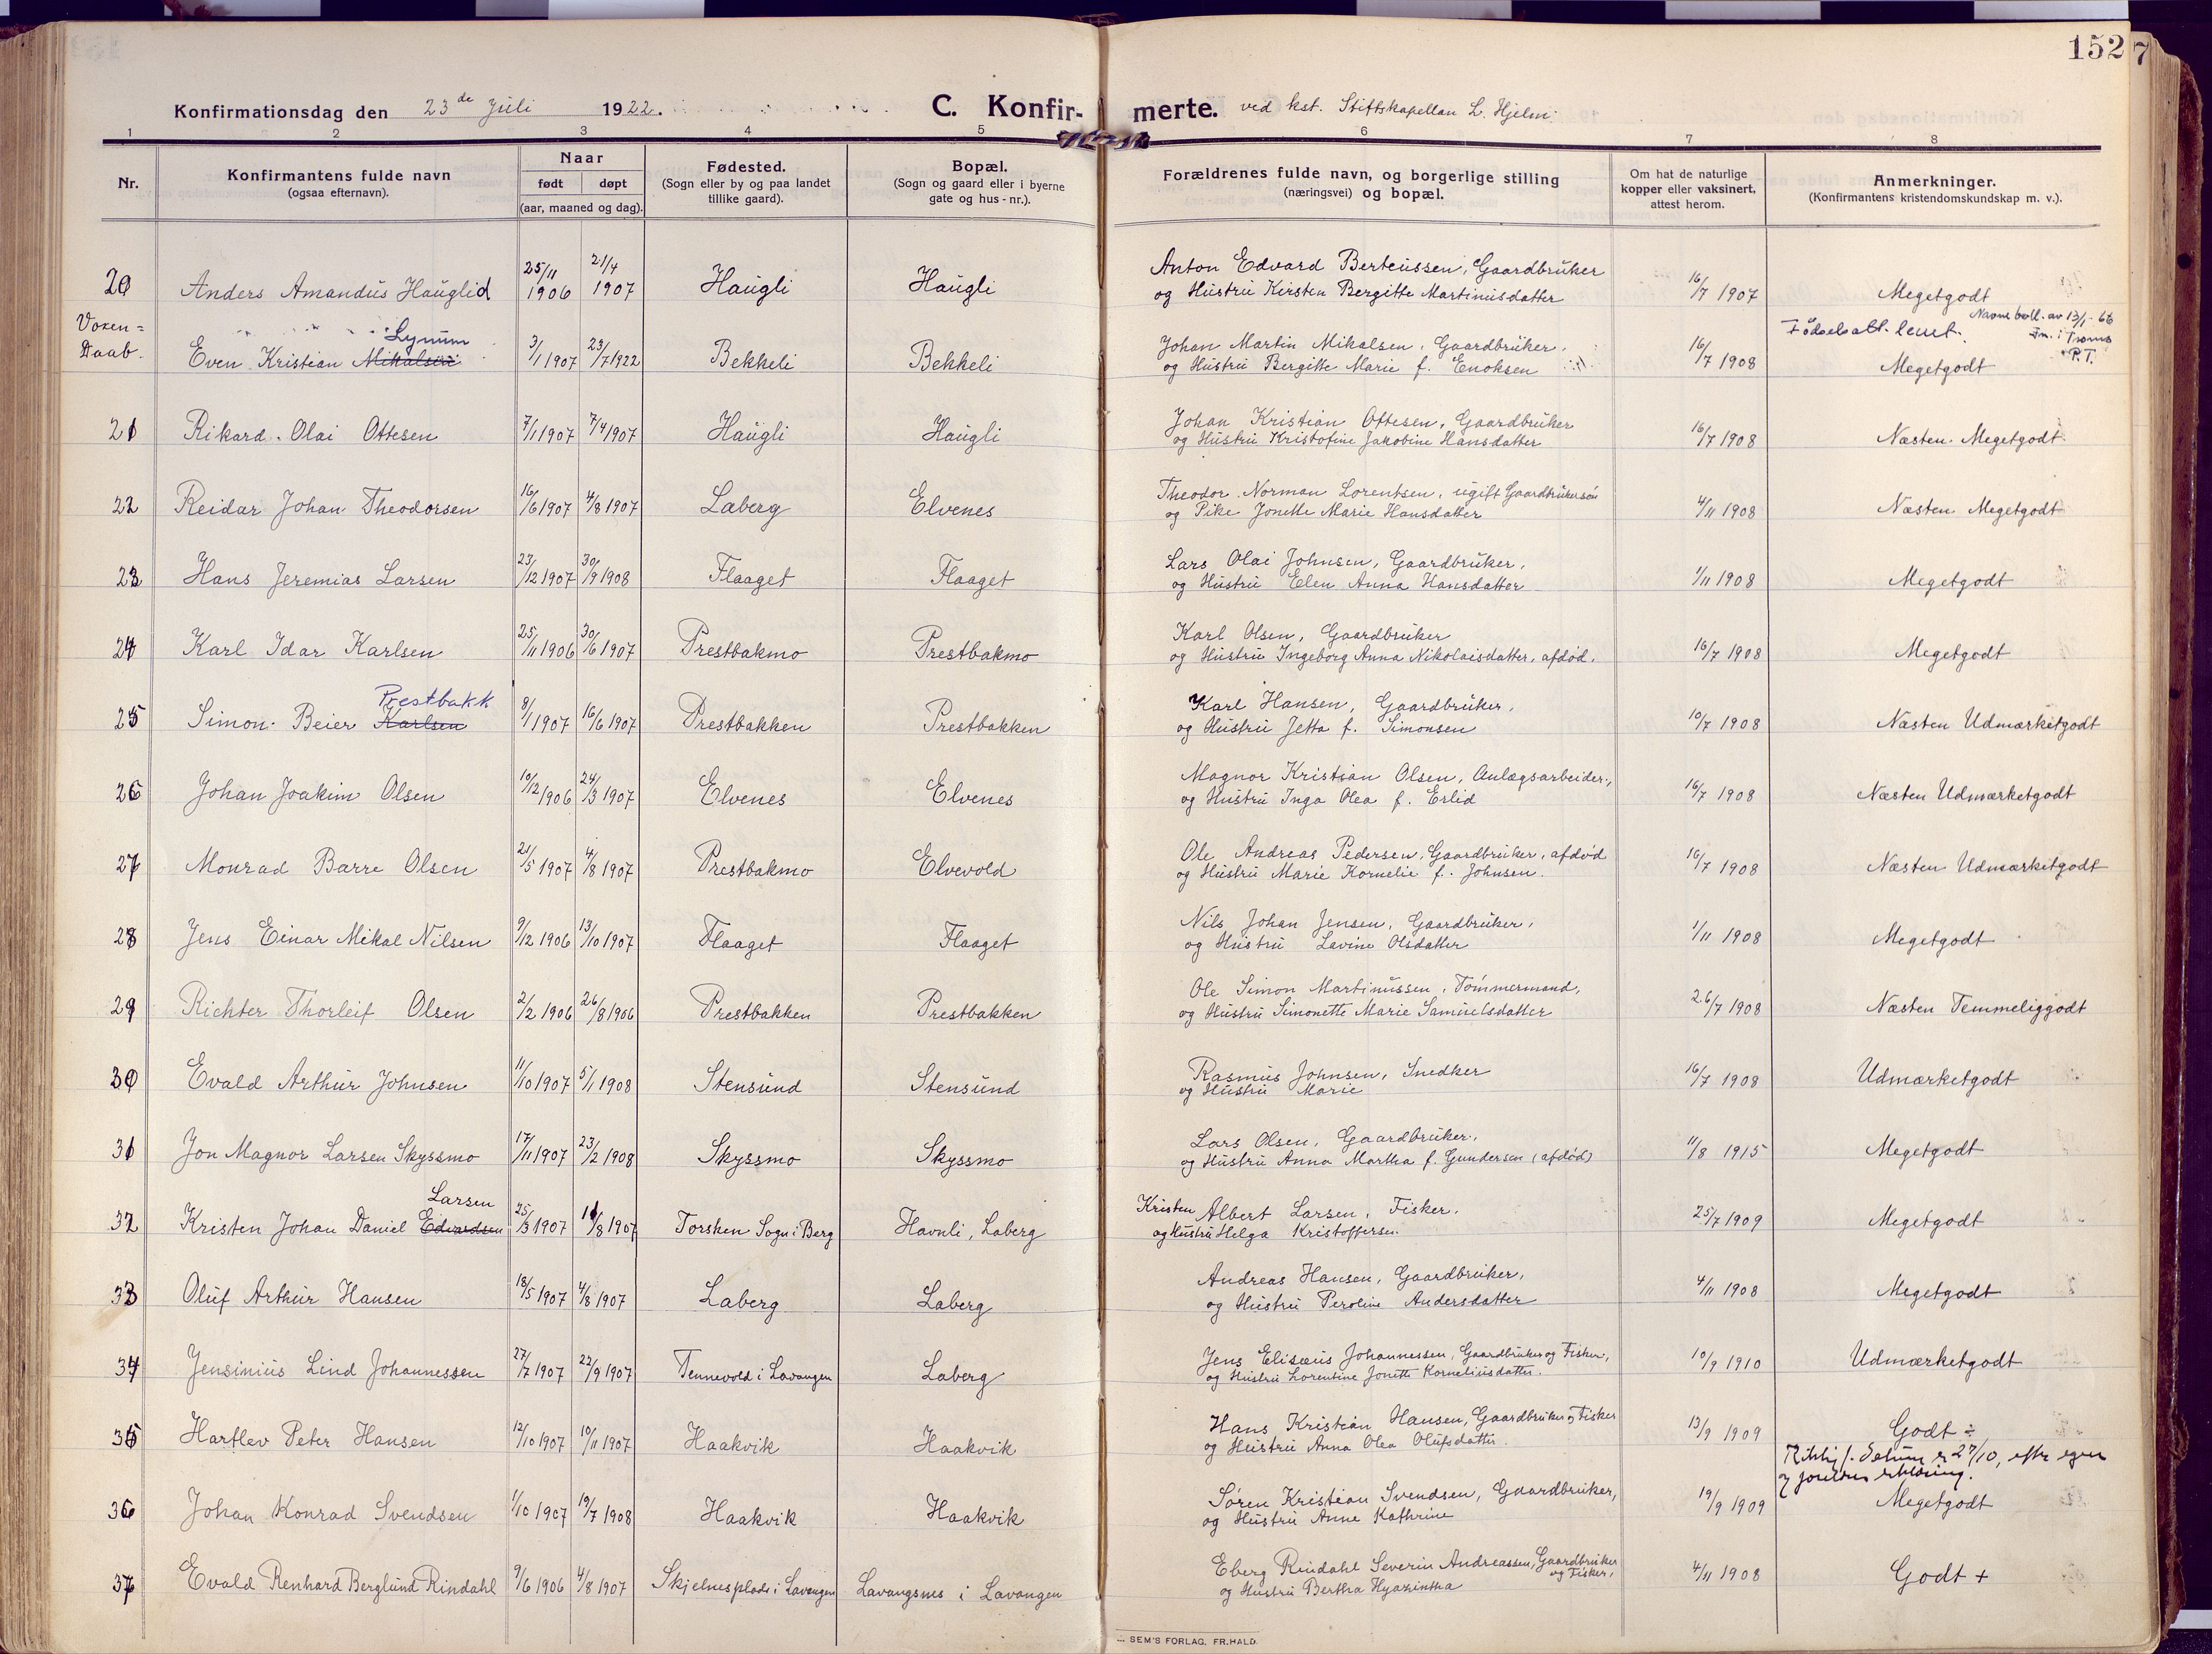 152
7
Konfirmationsdag den 23de Juli 1922.
C. Konfir- merte. ved kst. Stiftskapellan L. Hjelm
1 2 3 4 5 6 7 8
Nr.
Konfirmantens fulde navn
(ogsaa efternavn).
Naar
født døpt
(aar, maaned og dag).
Fødested.
(Sogn eller by og paa landet
tillike gaard).
Bopæl.
(Sogn og gaard eller i byerne
gate og hus-nr.).
Forældrenes fulde navn, og borgerlige stilling
(næringsvei) og bopæl.
Om hat de naturlige
kopper eller vaksinert,
attest herom.
Anmerkninger.
(Konfirmantens kristendomskundskap m. v.).
20 Anders Amandus Hauglid 25/11 1906 21/4 1907 Haugli Haugli Anton Edvard Berteussen, Gaardbruker
og Hustru Kirsten Bergitte Martinusdatter 16/7 1907 Megetgodt
Voxen=
Daab. Even Kristian Mikalsen Lynum 3/1 1907 23/7 1922 Bekkeli Bekkeli Johan Martin Mikalsen, Gaardbruker,
og Hustru Bergitte Marie f. Enoksen 16/7 1908 Megetgodt
Fødselsatt. levert. Navnebevill. av 13/1-66
Fm. i Troms
P.T.
21 Rikard Olai Ottesen 7/1 1907 7/4 1907 Haugli Haugli Johan Kristian Ottesen, Gaardbruker
og Hustru Kristofine Jakobine Hansdatter 16/7 1908 Næsten Megetgodt
22 Reidar Johan Theodorsen 16/6 1907 4/8 1907 Laberg Elvenes Theodor Norman Lorentsen, ugift Gaardbrukersøn
og Pike Jonette Marie Hansdatter 4/11 1908 Næsten Megetgodt
23 Hans Jeremias Larsen 23/12 1907 30/9 1908 Flaaget Flaaget Lars Olai Johnsen, Gaardbruker,
og Hustru Elen Anna Hansdatter 1/11 1908 Megetgodt
24 Karl Idar Karlsen 25/11 1906 30/6 1907 Prestbakmo Prestbakmo Karl Olsen, Gaardbruker
og Hustru Ingeborg Anna Nikolaisdatter, afdød. 16/7 1908 Megetgodt
25 Simon Beier Karlsen Prestbakk 8/1 1907 16/6 1907 Prestbakken Prestbakken Karl Hansen, Gaardbruker,
og Hustru Jetta f. Simonsen 10/7 1908 Næsten Udmærketgodt
26 Johan Joakim Olsen 10/12 1906 24/3 1907 Elvenes Elvenes Magnor Kristian Olsen, Anlægsarbeider,
og Hustru Inga Olea f. Erlid 16/7 1908 Næsten Udmærketgodt
27 Monrad Barre Olsen 21/5 1907 4/8 1907 Prestbakmo Elvevold Ole Andreas Pedersen, Gaardbruker, afdød
og Hustru Marie Kornelie f. Johnsen. 16/7 1908 Næsten Udmærketgodt
28 Jens Einar Mikal Nilsen 9/12 1906 13/10 1907 Flaaget Flaaget Nils Johan Jensen, Gaardbruker,
og Hustru Lavine Olsdatter 1/11 1908 Megetgodt
29 Richter Thorleif Olsen 2/2 1906 26/8 1906 Prestbakken Prestbakken Ole Simon Martinussen, Tømmermand,
og Hustru Simonette Marie Samuelsdatter 26/7 1908 Næsten Temmeliggodt
30 Evald Arthur Johnsen 11/10 1907 5/1 1908 Stensund Stensund Rasmus Johnsen, Snedker
og Hustru Marie 16/7 1908 Udmærketgodt
31 Jon Magnor Larsen Skyssmo 17/11 1907 23/2 1908 Skyssmo Skyssmo Lars Olsen, Gaardbruker,
og Hustru Anna Martha f. Gundersen (afdød) 11/8 1915 Megetgodt
32 Kristen Johan Daniel Edvardsen Larsen 25/3 1907 11/8 1907 Torsken Sogn i Berg Havnli, Laberg Kristen Albert Larsen, Fisker,
og Hustru Helga Kristoffersen. 25/7 1909 Megetgodt
33 Oluf Arthur Hansen 18/5 1907 4/8 1907 Laberg Laberg Andreas Hansen, Gaardbruker,
og Hustru Peroline Andersdatter 4/11 1908 Megetgodt
34 Jensinius Lind Johannessen 27/7 1907 22/9 1907 Tennevold i Lavangen Laberg Jens Elisæus Johannessen, Gaardbruker og Fisker,
og Hustru Lorentine Jonette Korneliusdatter. 10/9 1910 Udmærketgodt
35 Hartlev Peter Hansen 12/10 1907 10/11 1907 Haakvik Haakvik Hans Kristian Hansen, Gaardbruker og Fisker
og Hustru Anna Olea Olufsdatter. 13/9 1909 Godt ÷
Riktig f. datum er 27/10, efter egen
og jordens erklæring.
36 Johan Konrad Svendsen 1/10 1907 19/7 1908 Haakvik Haakvik Søren Kristian Svendsen, Gaardbruker,
og Hustru Anne Kathrine 19/9 1909 Megetgodt
37 Evald Renhard Berglund Rindahl 9/6 1906 4/8 1907 Skjelnesplads i Lavangen Lavangsnes i Lavangen Eberg Rindahl Severin Andreassen, Gaardbruker
og Fisker,
og Hustru Bertha Hyazintha 4/11 1908 Godt +
SEM'S FORLAG, FR.HALD.